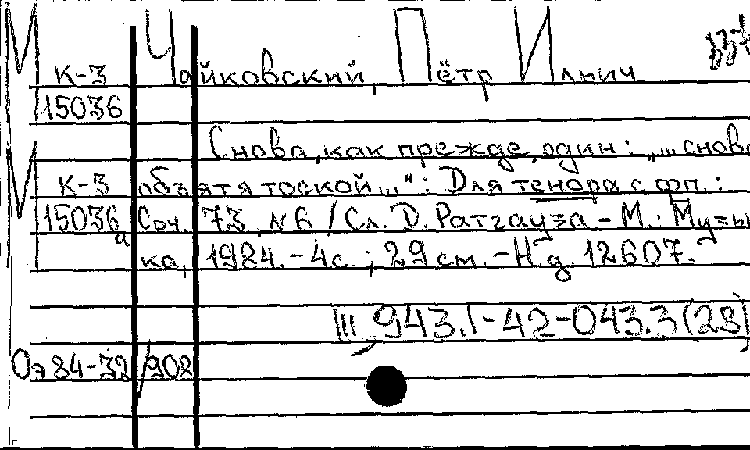 М
Чайковский, Пётр Ильич 337
К-3
15036
Снова, как прежде, один: "... снова
М К-3 объята тоской...": Для тенора с фп.:
15036а Соч. 73, № 6 / Сл. Д. Ратгауза - М.: Музы
ка, 1984. - 4 с.; 29 см. - Н.д. 12607.
Ш 943.1-42-043.3(28)
Оэ 84-32/902